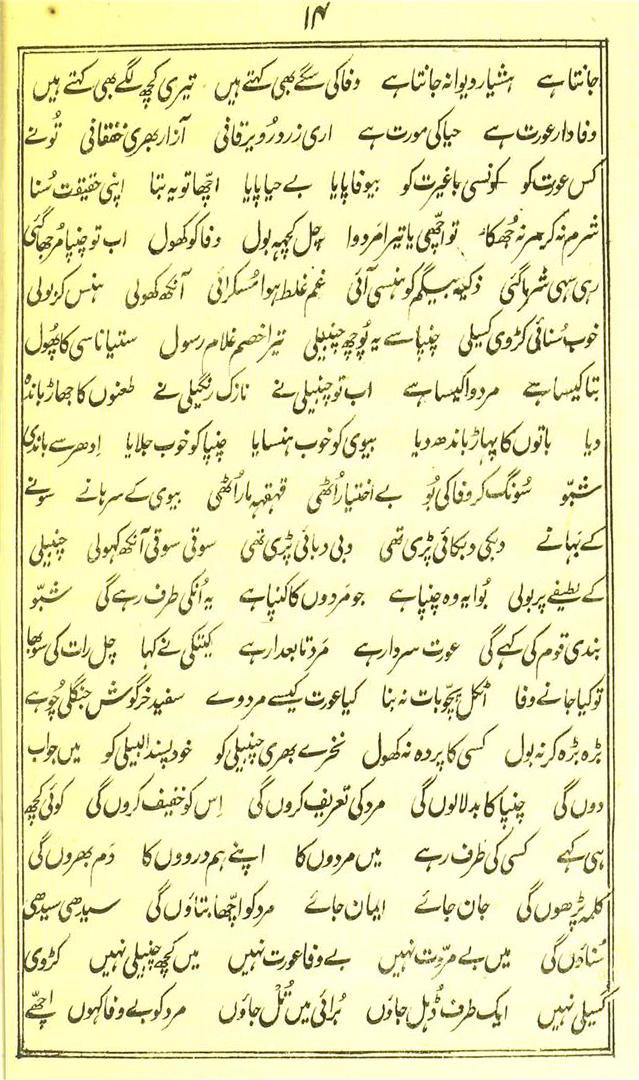 ۱۴
جانتا ہے ہشیار دیوانہ جانتا ہے وفا کی سگے بھی کہتے ہیں تیری کچھ لگے بھی کہتے ہیں
وفادار عورت ہے حیا کی مورت ہے اری زرد رُو یرقانی آزار بھری خفقانی تُونے
کس عورت کو کونسی باغیرت کو بیوفا پایا بے حیا پایا اچھا تو یہ بتا اپنی حقیقت سُنا
شرم نہ کر سر نہ جُھکا تو اچھی یا تیرا مردوا چل کچہہ بول وفا کو کھول اب تو چنپا مُرجھا گئی
رہی سہی شرما گئی ذکیہ بیگم کو ہنسی آئی غم غلط ہوا مُسکرائی آنکھ کھولی ہنس کر بولی
خوب سُنائی کڑوی کسیلی چنپا سے یہ پُوچھ چنبیلی تیرا خصم غلام رسول ستیاناسی کا پھول
بتا کیسا ہے مردوا کیسا ہے اب تو چنبیلی نے نازک رنگیلی نے طعنوں کا جھاڑ باندھ
دیا باتوں کا پہاڑ باندھ دیا بیوی کو خوب ہنسایا چنپا کو خوب جلایا اِدھر سے باندی
شبّو سُونگ کر وفا کی بُو بے اختیار اُٹھی قہقہہ مار اُٹھی بیوی کے سرہانے سونے
کے بہانے دبکی دبکائی پڑی تھی دبی دبائی پڑی تھی سوتی سوتی آنکھ کہولی چنبیلی
کے لطیفے پر بولی بُوا یہ وہ چنپا ہے جو مَردوں کا کنپا ہے یہ اُنکی طرف رہے گی شبّو
بندی قوم کی کہے گی عورت سردار ہے مَرد تابعدار ہے کیتکی نے کہا چل رات کی سوبھا
تو کیا جانے وفا اٹکل پچّو بات نہ بنا کیا عورت کیسے مردوے سفید خرگوش جنگلی چُوہے
بڑہ بڑہ کر نہ بول کسی کا پردہ نہ کھول نخرے بھری چنبیلی کو خود پسند البیلی کو میں جواب
دوں گی چنپا کا بدلا لوں گی مرد کی تعریف کروں گی اِس کو خفیف کروں گی کوئی کچھ
ہی کہے کسی کی طرف رہے میں مردوں کا اپنے ہمدردوں کا دَم بھروں گی
کلمہ پڑھوں گی جان جائے ایمان جائے مرد کو اچھا بتاؤں گی سیدھی سیدھی
سُناؤں گی میں بے مرّوت نہیں بے وفا عورت نہیں میں کچھ چنبیلی نہیں کڑوی
کسیلی نہیں ایک طرف ڈُہل جاؤں بُرائی میں تُل جاؤں مرد کو بے وفا کہوں اچھے